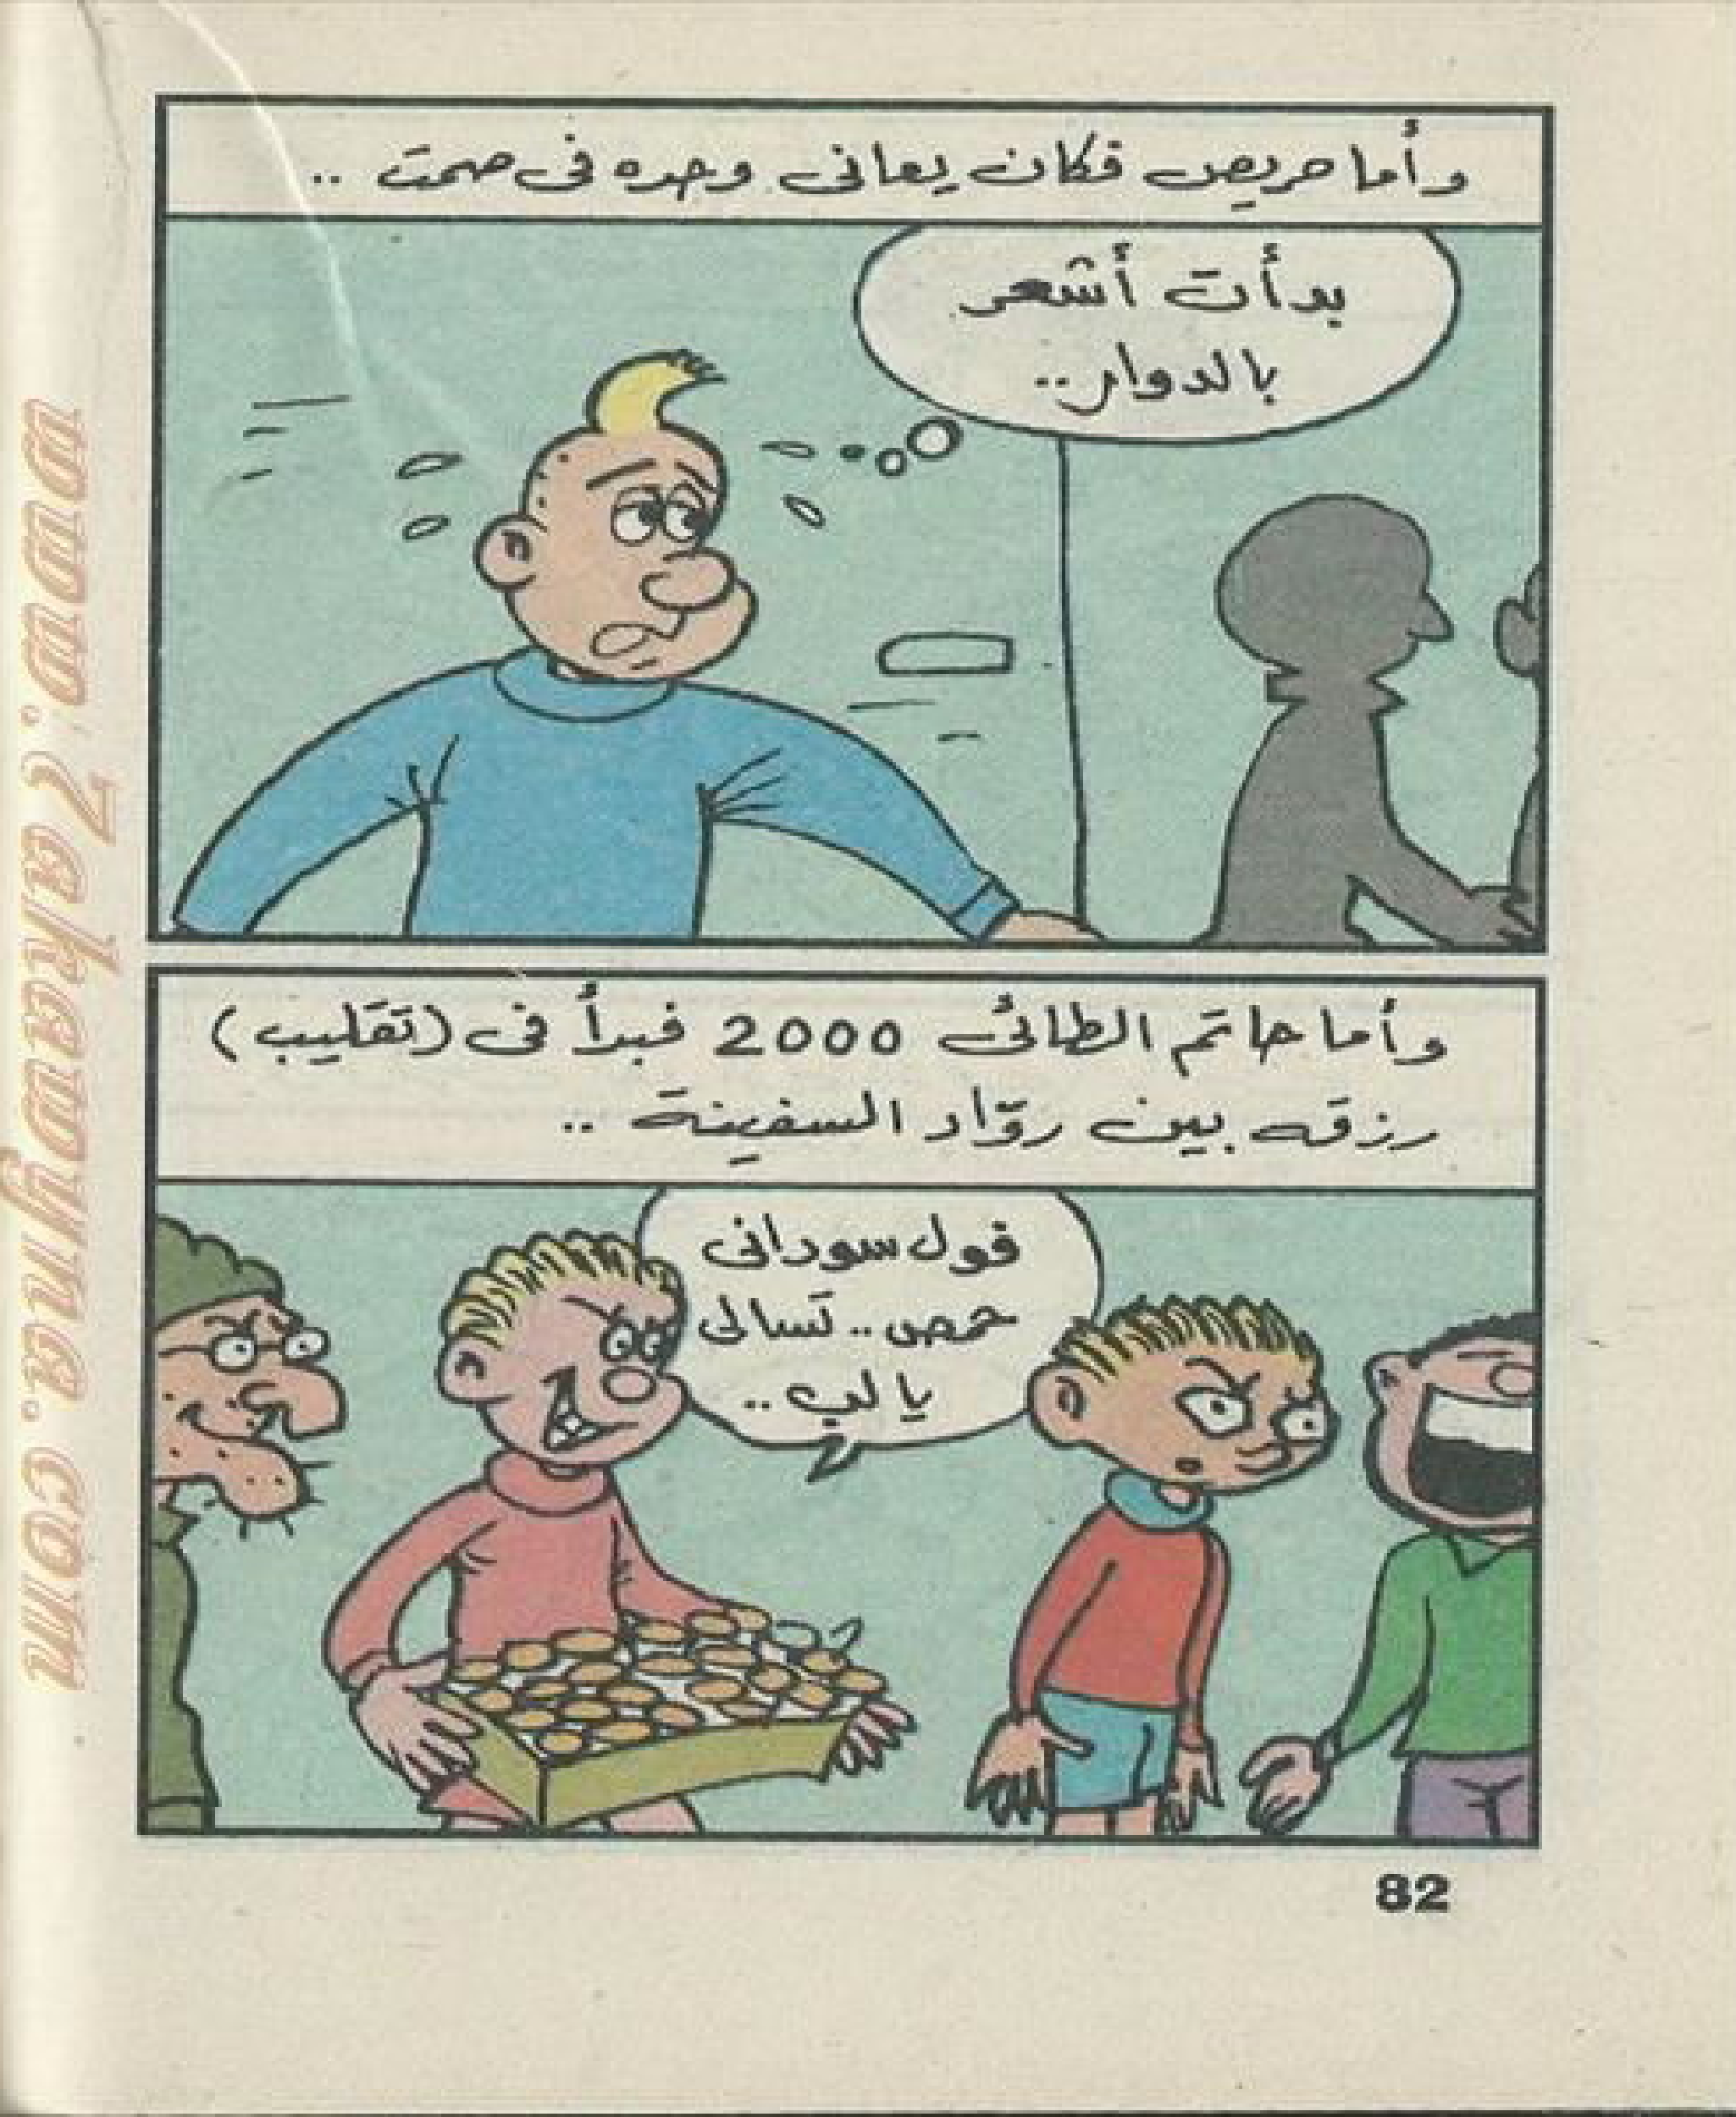 وأما حريص فكان يعانى وحده فى صمت ..
بدأت أشعر
بالدوار..
وأما حاتم الطائى 2000 فبدأ فى (تقليب)
رزقه بين روّاد السفينة ..
فول سودانى
حمص.. تسالى
يا لب ..
82
www.zakawyna.com